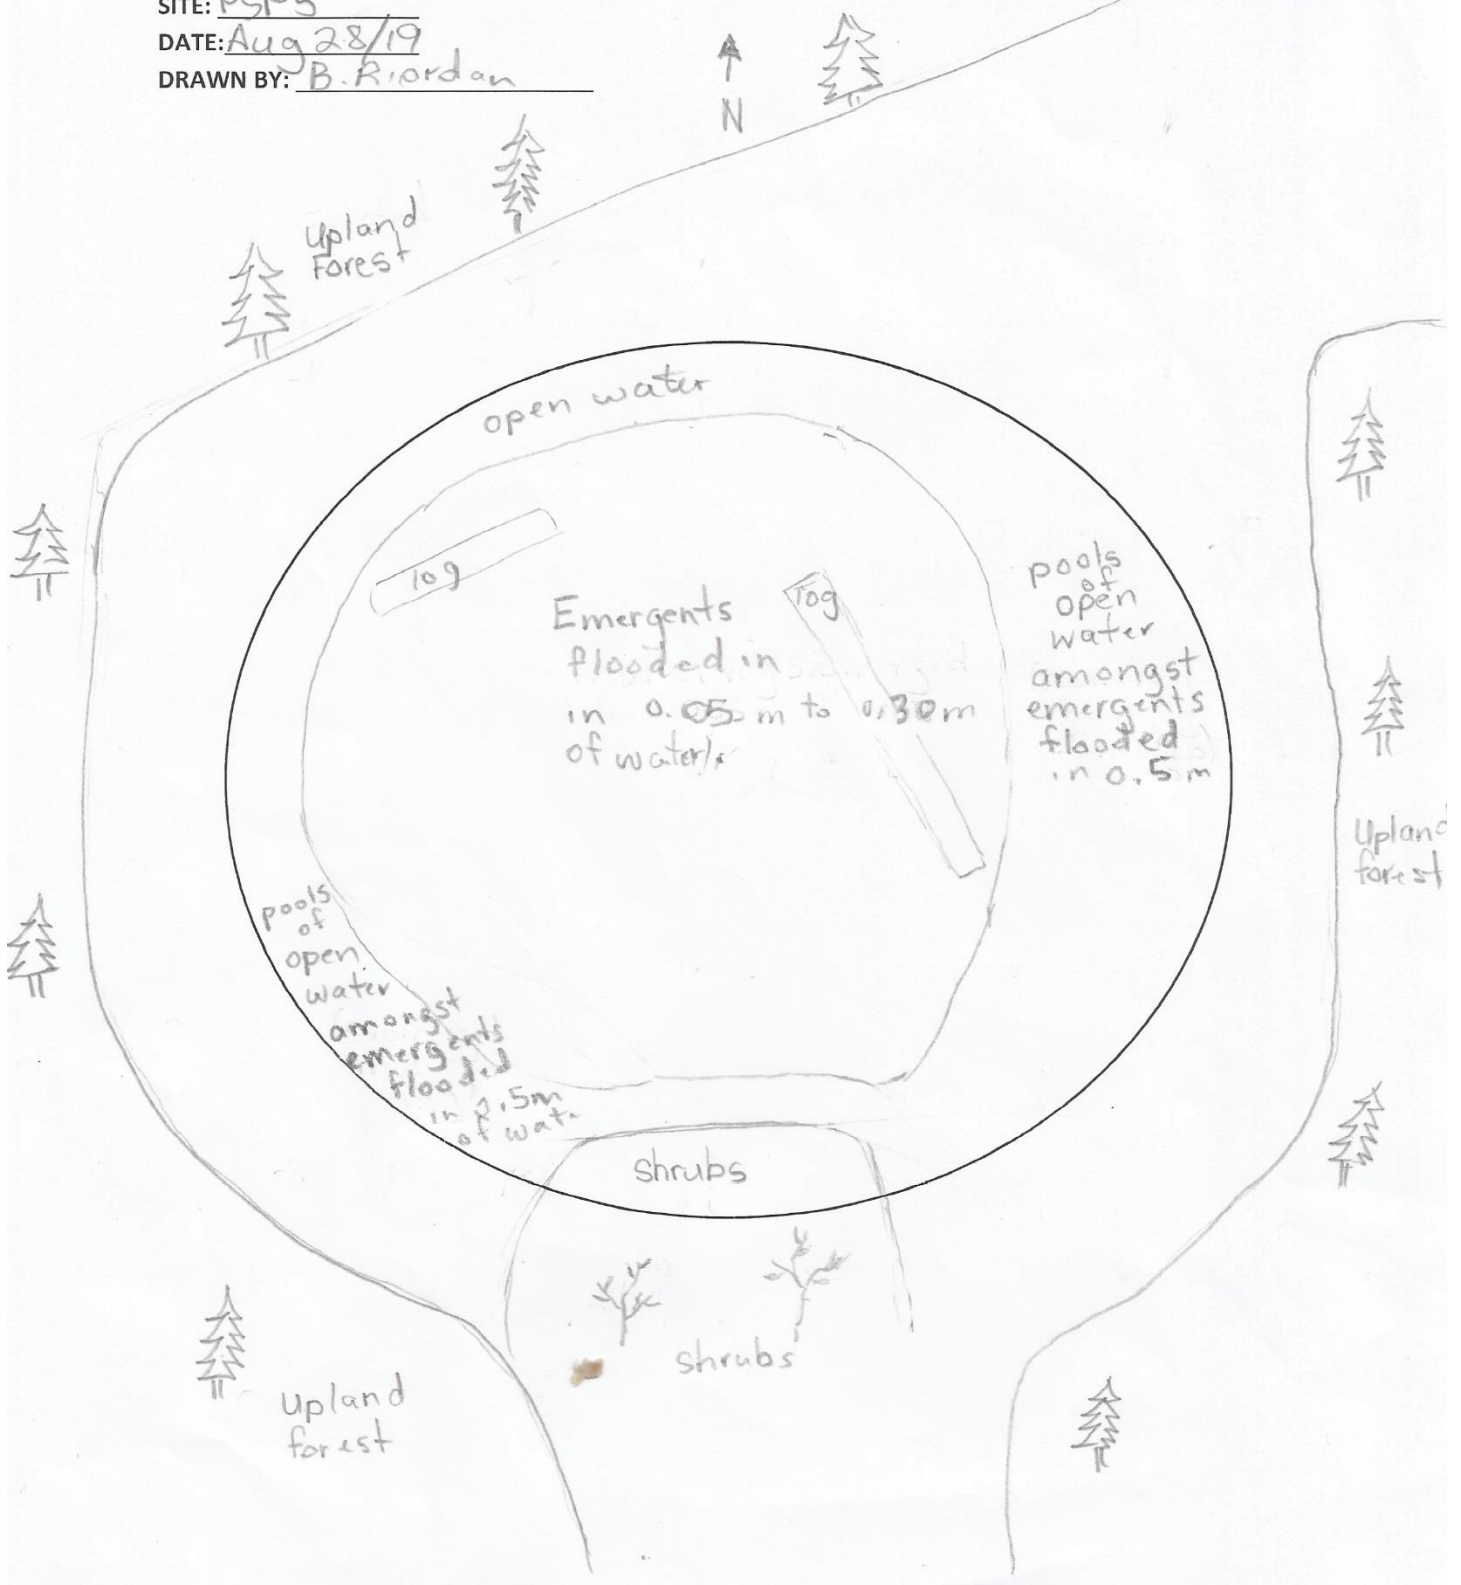 SITE: PSP5
DATE: Aug 28/19
DRAWN BY: B. Riordan
N
Upland
Forest
open water
log
log
Emergents
flooded in
in 0.05 m to 0.30 m
of water
pools
of
open
water
amongst
emergents
flooded
in 0.5 m
Upland
forest
pools
of
open
water
amongst
emergents
flooded
in 0.5m
of wat
shrubs
shrubs
Upland
forest